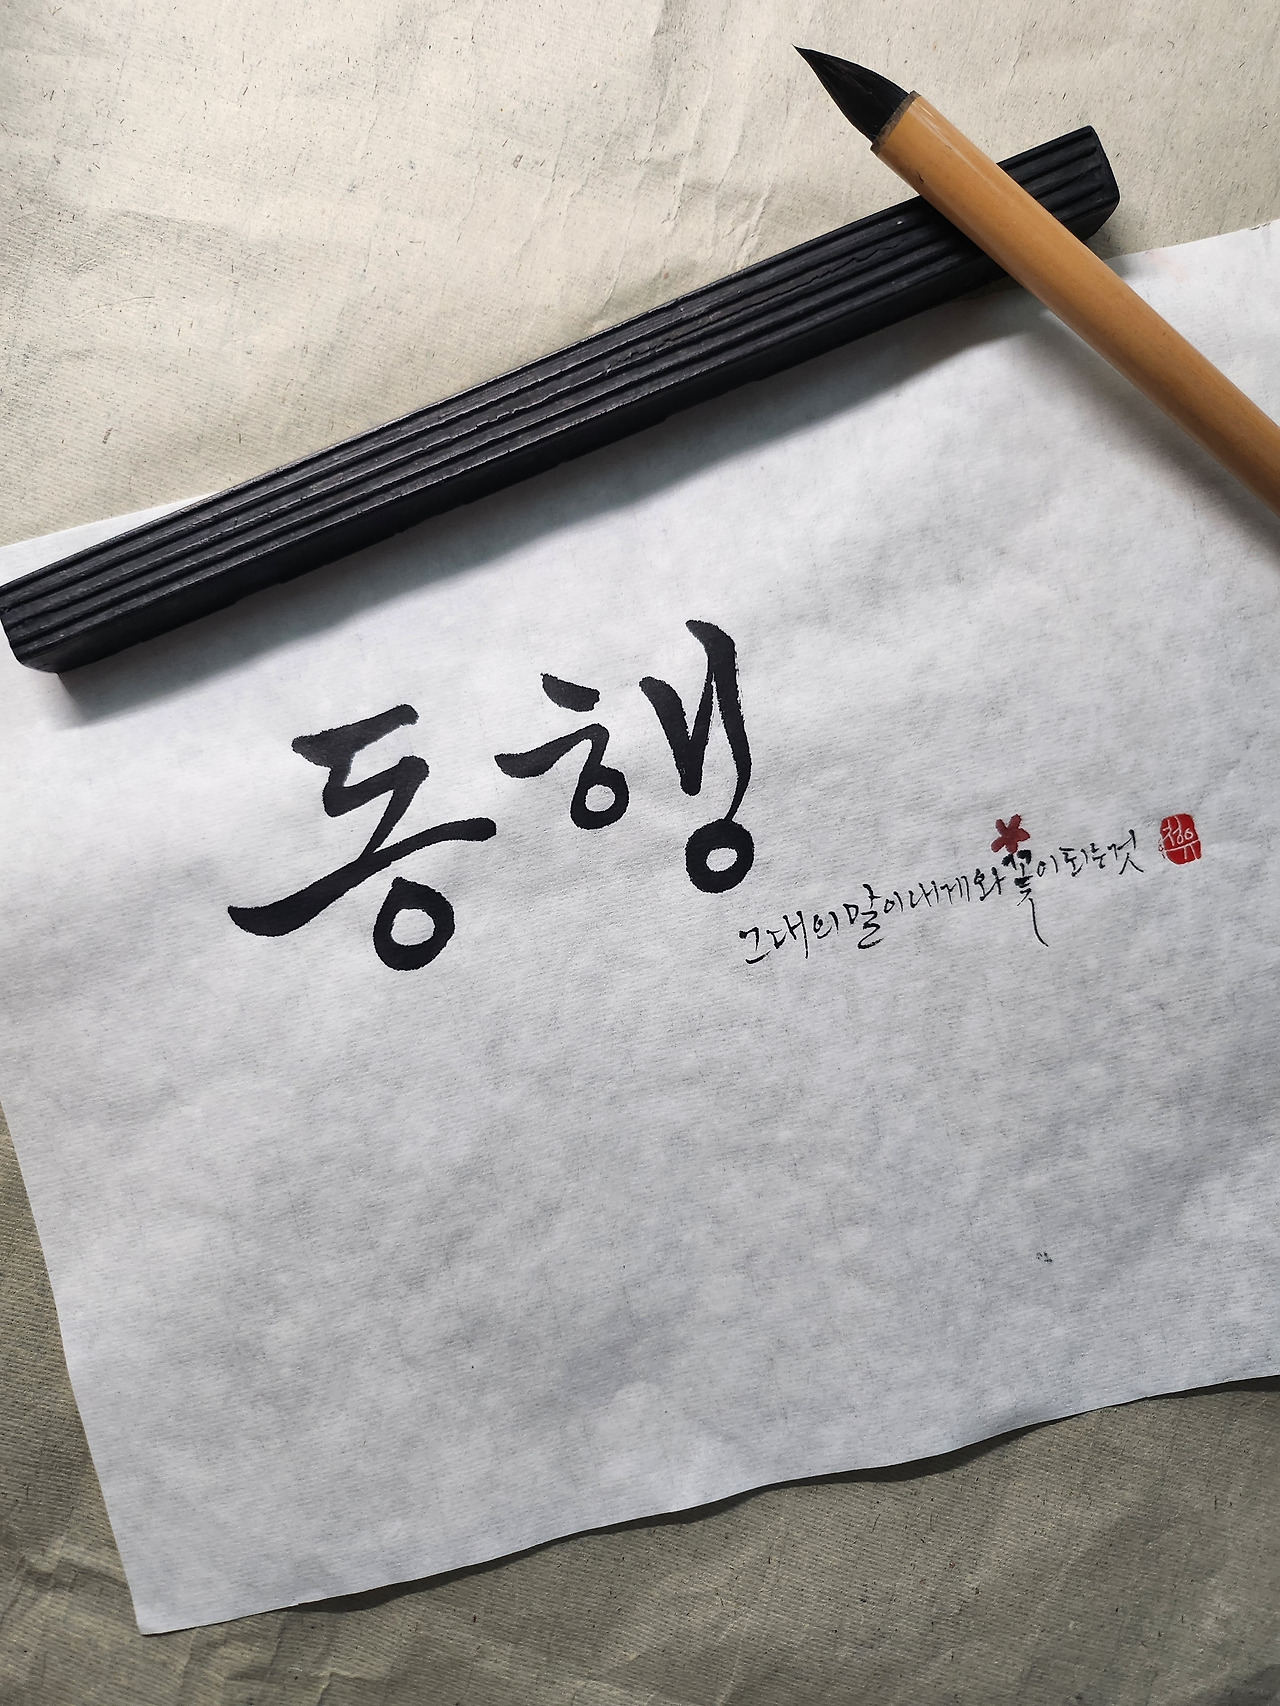 동행
그대의 말이 내게와 꽃이 되는 것